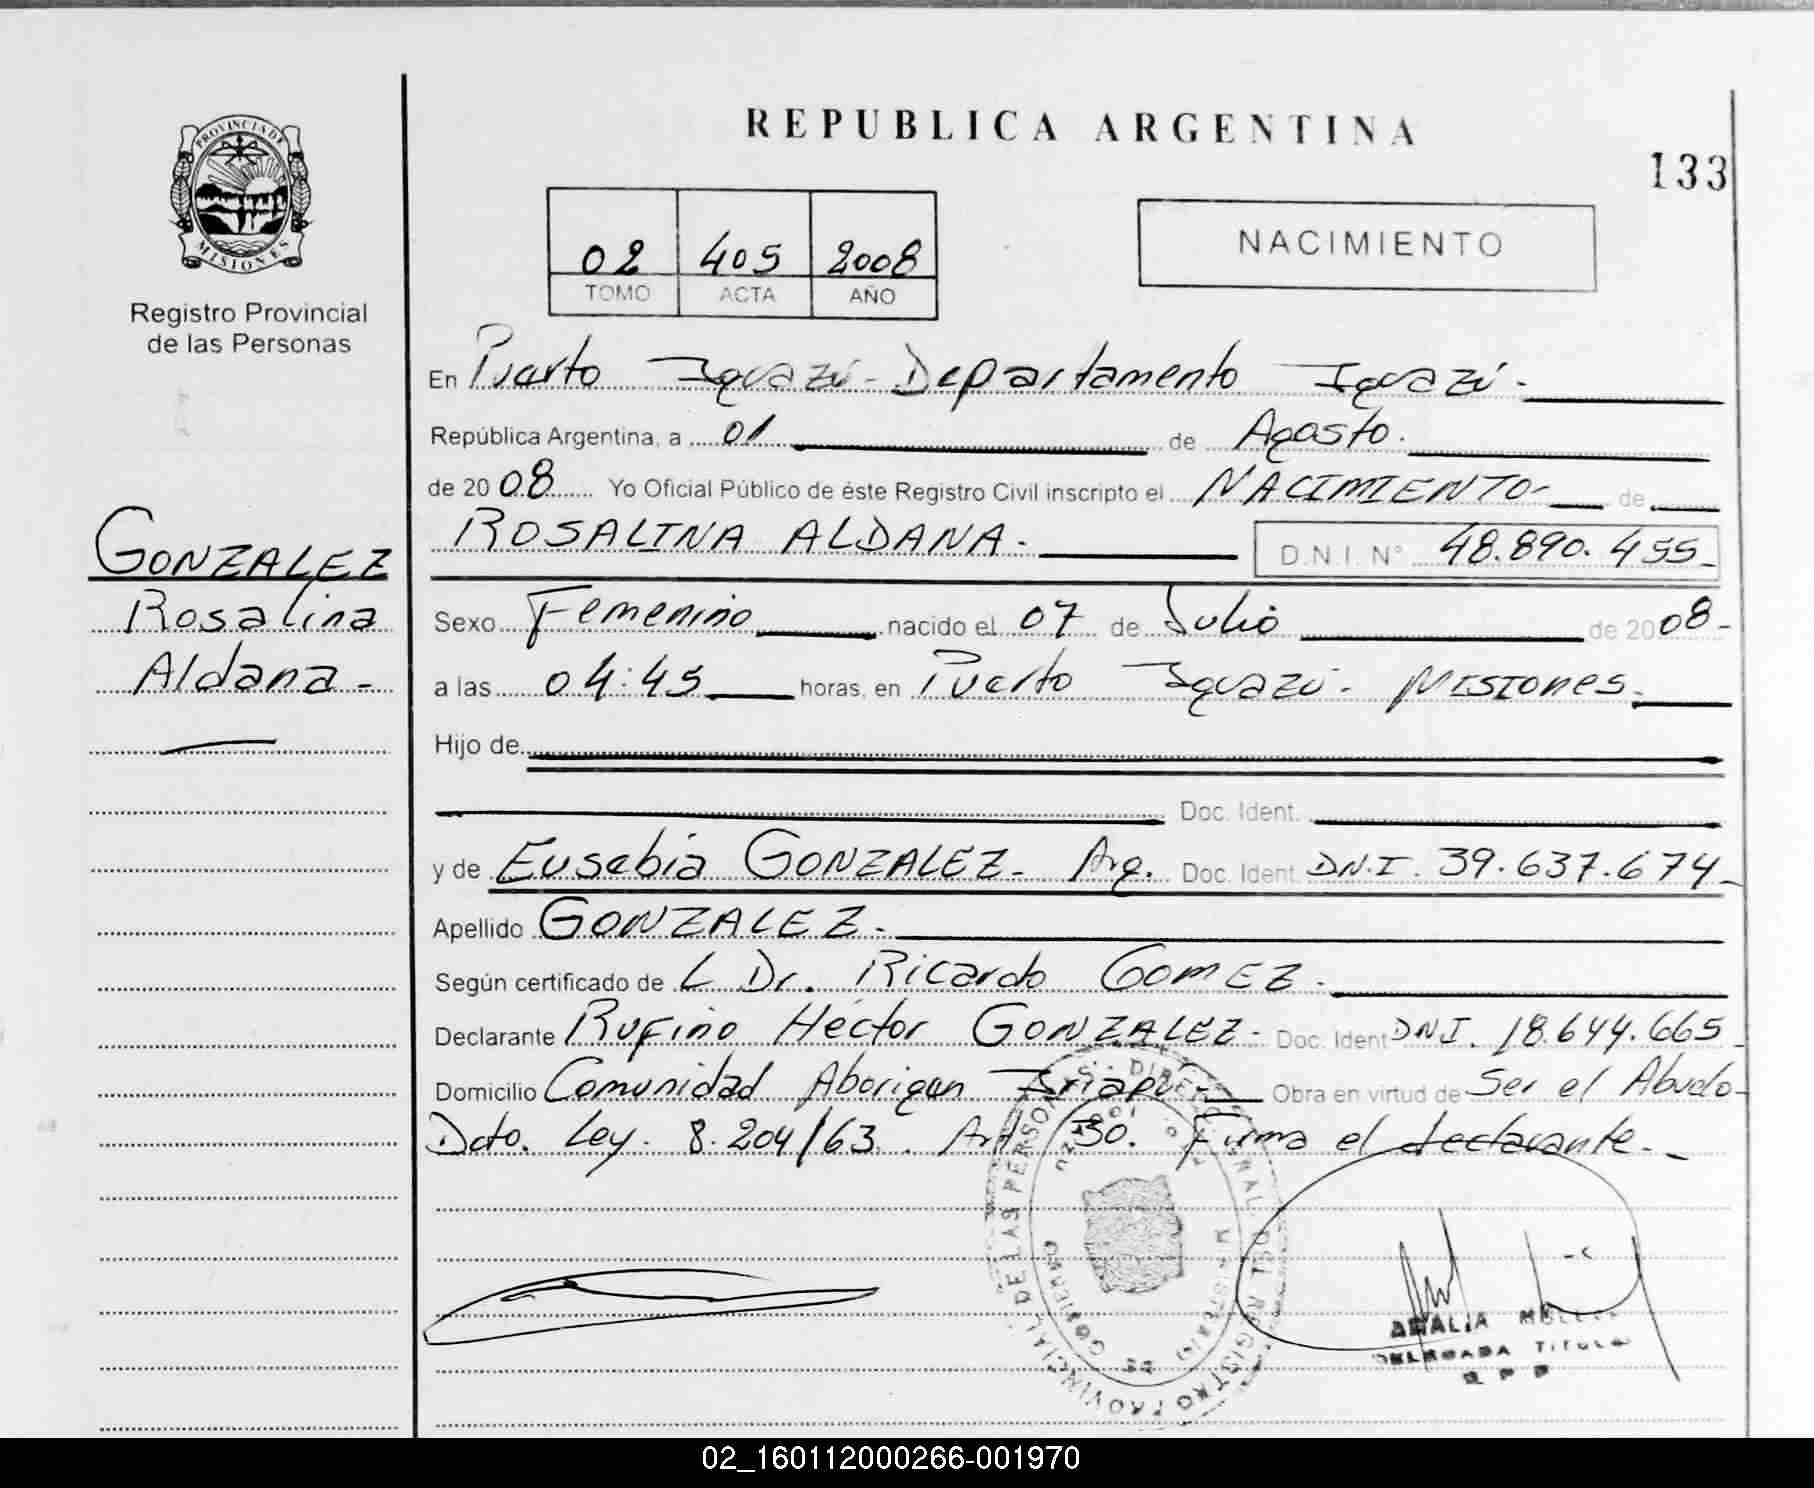 REPUBLICA ARGENTINA
133
PROVINCIA DE
MISIONES
Registro Provincial
de las Personas
02 405 2008
TOMO ACTA AÑO
NACIMIENTO
En Puerto Iguazú - Departamento Iguazú -
República Argentina, a 01 de Agosto.
de 20 08 Yo Oficial Público de éste Registro Civil inscripto el NACIMIENTO - de
ROSALINA ALDANA - D.N.I. N° 48.890.455 -
GONZALEZ
Rosalina
Aldana -
Sexo Femenino nacido el 07 de Julio de 20 08 -
a las 04:45 horas, en Puerto Iguazú - Misiones.
Hijo de
Doc. Ident.
y de Eusebia GONZALEZ - Arg. Doc. Ident. DN.I. 39.637.674 -
Apellido GONZALEZ -
Según certificado de L Dr. Ricardo GOMEZ -
Declarante Rufino Héctor GONZALEZ - Doc. Ident DNI. 18.644.665 -
Domicilio Comunidad Aborigen Obra en virtud de Ser el Abuelo -
Dcto. Ley. 8.204/63. Art 30. Firma el declarante. -
PROVINCIAL DE LAS PERSONAS
REGISTRO
MINISTERIO DE GOBIERNO
DELEGADA TITULAR
R P P
02_160112000266-001970